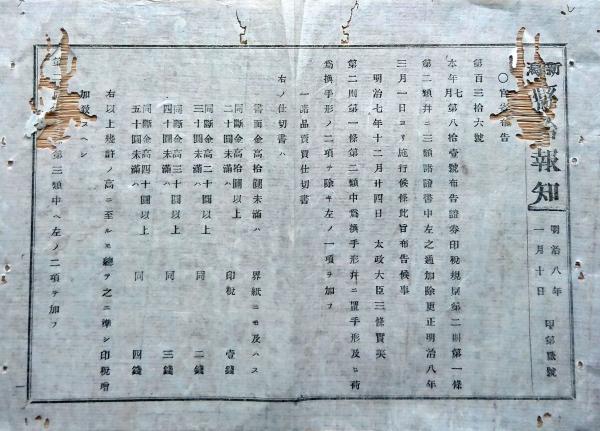 新潟
報知
明治八年
一月十日
第百三拾六號
本年七月第八拾壹號布告證券印税規則第二則第一條
第二類幷ニ三類諸證書中左之通加除更正明治八年
三月一日ヨリ施行候條此旨布告候事
明治七年十二月廿四日 太政大臣三條實美
第二則第一條第二類中爲換手形幷ニ置手形及ヒ荷
爲換手形ノ二項ヲ除キ左ノ一項ヲ加フ
一諸品賣買仕切書
右ノ仕切書ハ
書面金高拾圓未滿ハ 界紙ニモ及ハス
同斷金高拾圓以上
二十圓未滿ハ 印税 壹錢
同斷金高二十圓以上
三十圓未滿ハ 同 二錢
同斷金高三十圓以上
四十圓未滿ハ 同 三錢
同斷金高四十圓以上
五十圓未滿ハ 同 四錢
右以上幾許ノ高ニ至ルモ總テ之ニ準シ印税增
加
第三類中ヘ左ノ二項ヲ加フ